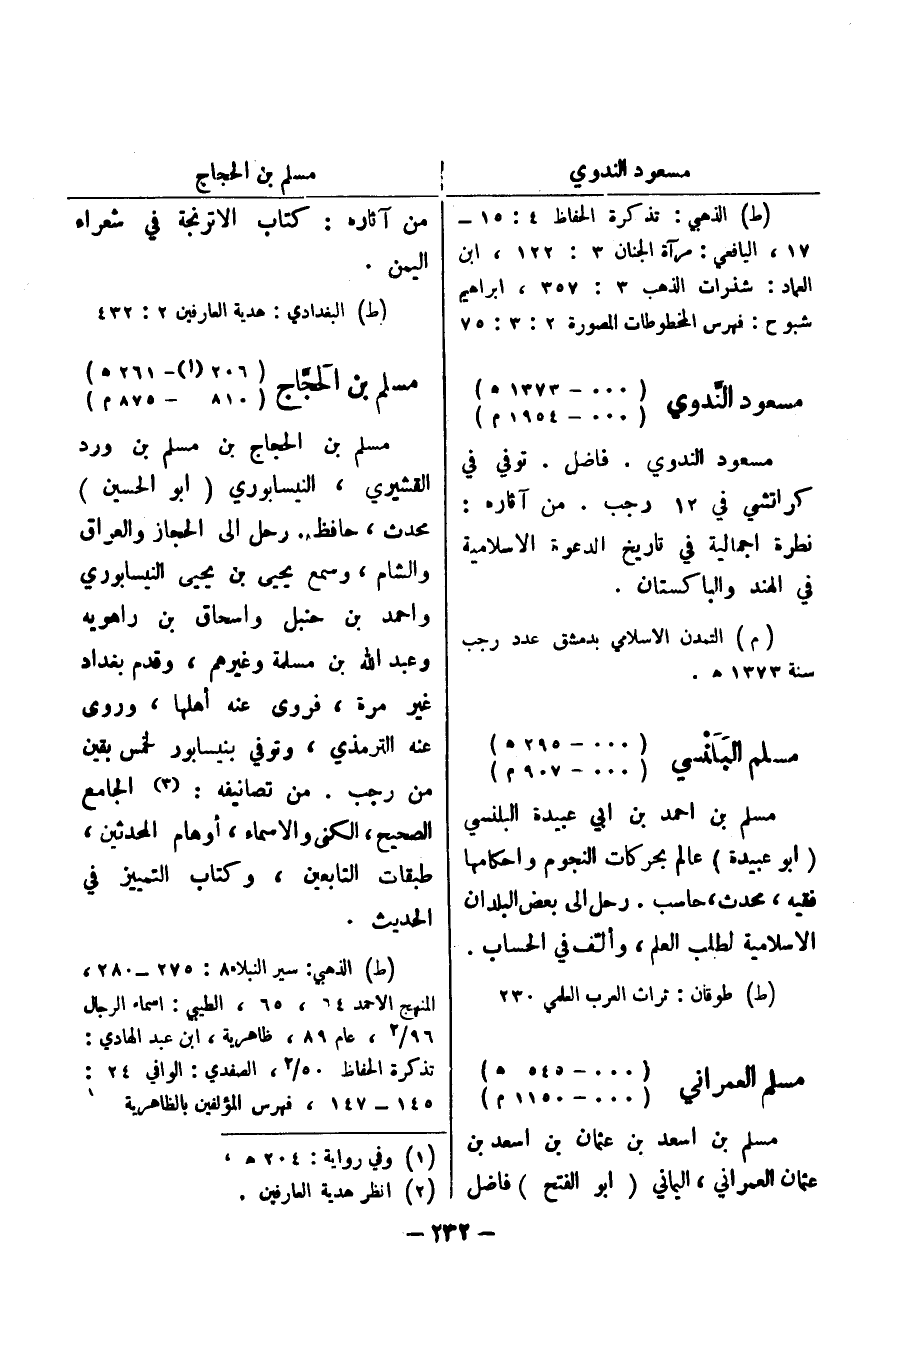 مسعود الندوي
مسلم بن الحجاج
(ط) الذهبي : تذكرة الحفاظ ٤ : ١٥ ــ
١٧ ، اليافعي : مرآة الجنان ٣ : ١٢٢ ، ابن
العماد : شذرات الذهب ٣ : ٣٥٧ ، ابراهيم
شبوح : فهرس المخطوطات المصورة ٢ : ٣ : ٧٥
مسعود النَّدوي ( ٠٠٠ – ١٣٧٣ ه )
( ٠٠٠ – ١٩٥٤ م )
مسعود الندوي . فاضل . توفي في
كراتشي في ١٢ رجب . من آثاره :
نطرة اجمالية في تاريخ الدعوة الاسلامية
في الهند والباكستان .
( م ) التمدن الاسلامي بدمشق عدد رجب
سنة ١٣٧٣ ه .
مسلم البَلَنْسي ( ٠٠٠ – ٢٩٥ ه )
( ٠٠٠ – ٩٠٧ م )
مسلم بن احمد بن ابي عبيدة البلنسي
( ابو عبيدة ) عالم بحركات النجوم واحكامها
فقيه ، محدث ، حاسب . رحل الى بعض البلدان
الاسلامية لطلب العلم ، وألّف في الحساب .
(ط) طوقان : تراث العرب العلمي ٢٣٠
مسلم العمراني ( ٠٠٠ – ٥٤٥ ه )
( ٠٠٠ – ١١٥٠ م )
مسلم بن اسعد بن عثمان بن اسعد بن
عثمان العمراني ، اليماني ( ابو الفتح ) فاضل
من آثاره : كتاب الاترنجة في شعراء
اليمن .
(ط) البغدادي : هدية العارفين ٢ : ٤٣٢
مسلم بن الحَجَّاج ( ٢٠٦ (١) – ٢٦١ ه )
( ٨١٠ – ٨٧٥ م )
مسلم بن الحجاج بن مسلم بن ورد
القشيري ، النيسابوري ( ابو الحسين )
محدث ، حافظ .. رحل الى الحجاز والعراق
والشام ، وسمع يحيى بن يحيى النيسابوري
واحمد بن حنبل واسحاق بن راهويه
وعبد الله بن مسلمة وغيرهم ، وقدم بغداد
غير مرة ، فروى عنه أهلها ، وروى
عنه الترمذي ، وتوفي بنيسابور لخمس بقين
من رجب . من تصانيفه : (٢) الجامع
الصحيح ، الكنى والاسماء ، أوهام المحدثين ،
طبقات التابعين ، وكتاب التمييز في
الحديث .
(ط) الذهبي : سير النبلاء ٨ : ٢٧٥ – ٢٨٠ ،
المنهج الاحمد ٦٤ ، ٦٥ ، الطيبي : اسماء الرجال
٩٦/٢ ، عام ٨٩ ، ظاهرية ، ابن عبد الهادي :
تذكرة الحفاظ ٥٠/٢ ، الصفدي : الوافي ٢٤ :
١٤٥ – ١٤٧ ، فهرس المؤلفين بالظاهرية
(١) وفي رواية : ٢٠٤ ه ،
(٢) انظر هدية العارفين .
– ٢٣٢ –